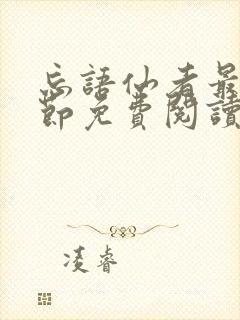 忘語仙者最
節免費閱讀
凌睿